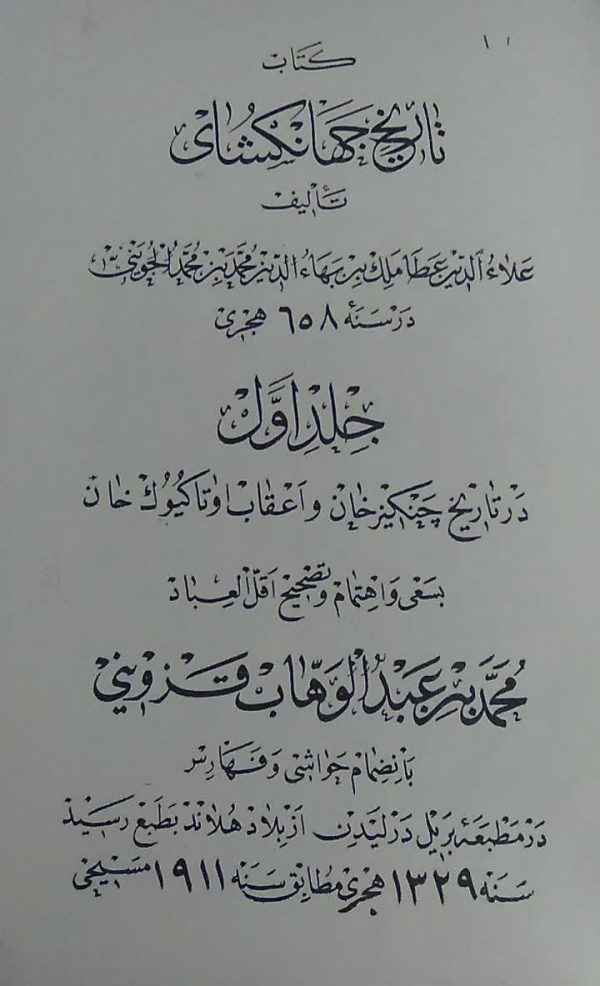 ١ ١
كتاب
تاريخ جهانكشاى
تأليف
علاء الدين عطا ملك بن بهاء الدين محمد بن محمد الجوينىّ
در سنهٔ ٦٥٨ هجرى
جِلدِ اوَّل
در تاريخ چنكيز خان و اعقاب او تا كيوك خان
بسعى و اهتمام و تصحيح اقلّ العباد
محمَّد بن عبد الوهّاب قزوينى
بانضمام حواشى و فهارس
در مطبعهٔ بريل در ليدن از بلاد هلاند بطبع رسيد
سنه ١٣٢٩ هجرى مطابق سنه ١٩١١ مسيحى